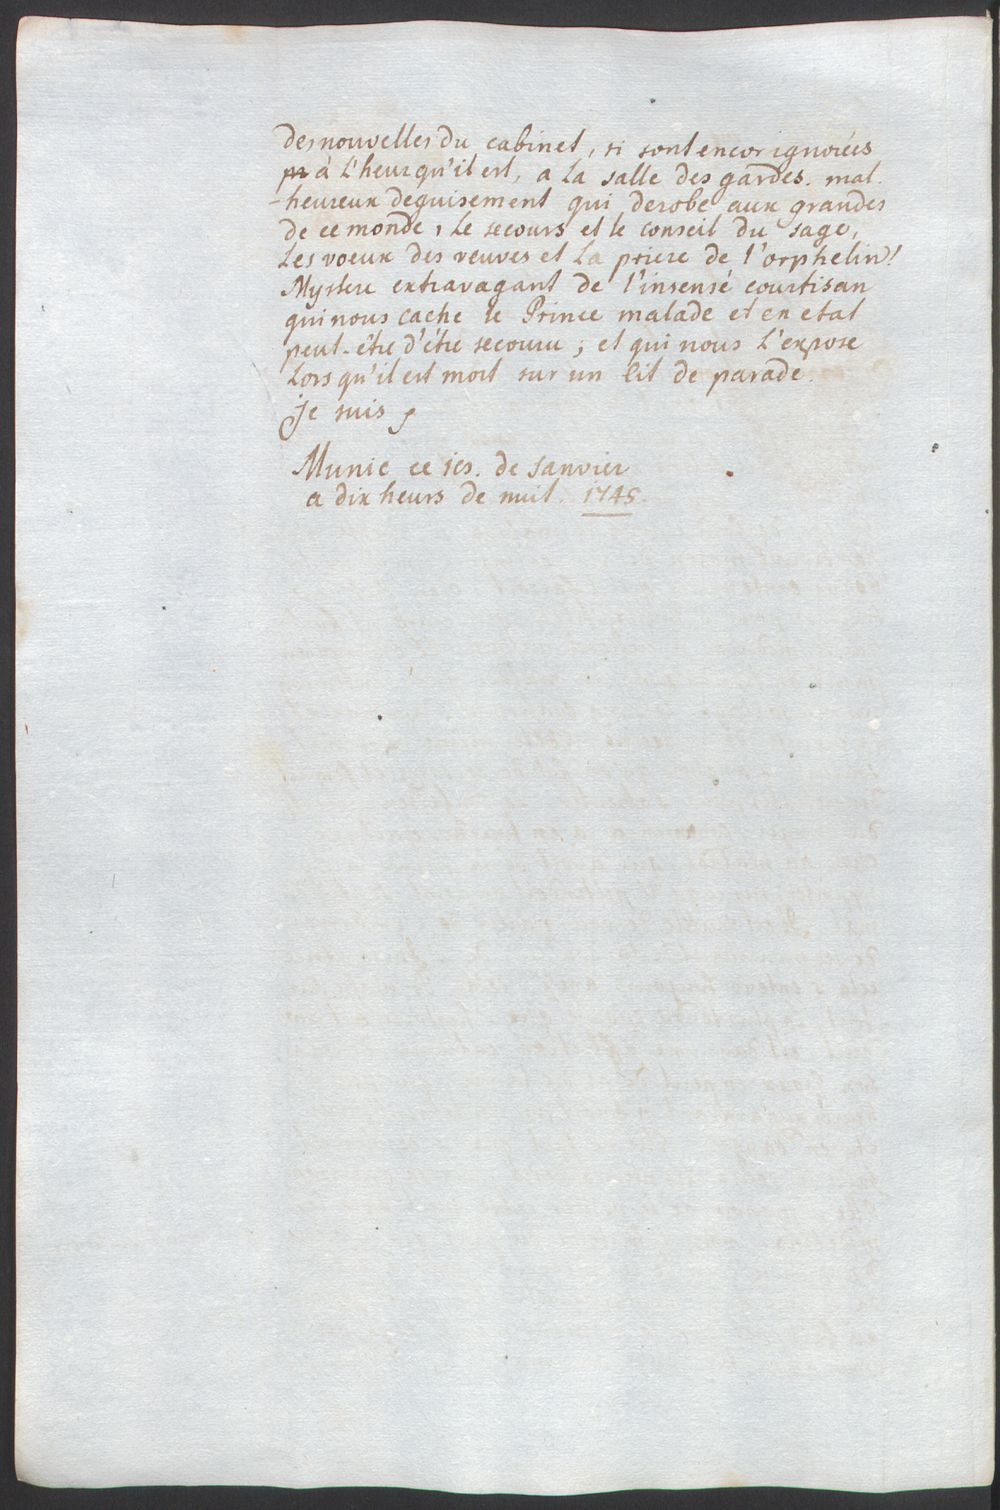 des nouvelles du cabinet, si sont encor ignorées
à l'heur qu'il est, a la salle des gardes. mal
-heureux deguisement qui derobe aux grandes
de ce monde, le secours et le conseil du sage,
les voeux des veuves et la priere de l'orphelin!
Mystere extravagant de l'insensé courtisan
qui nous cache le Prince malade et en etat
peut-être d'être secouru; et qui nous l'expose
lors qu'il est mort sur un lit de parade.
je suis
Munic ce de Janvier
a dix heurs de nuit. 1745.